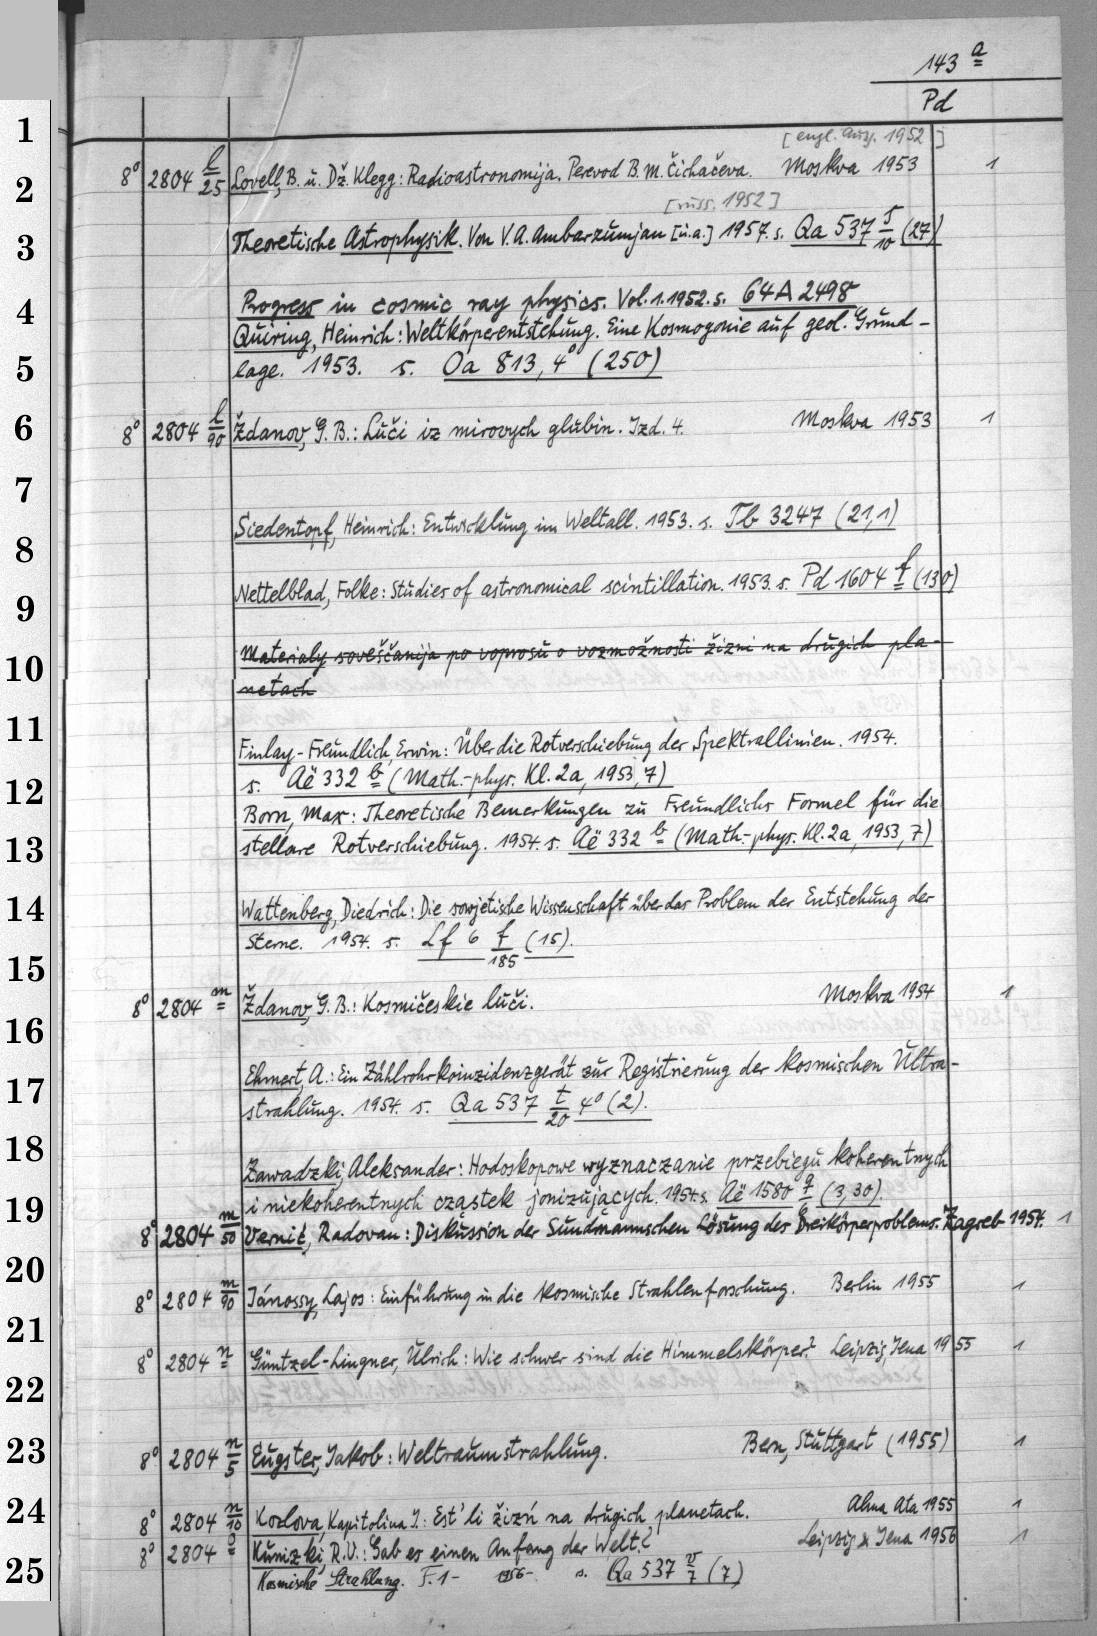 143 a
Pd
1
[engl. Ausg. 1952]
2 8° 2804 l/25 Lovell, B. u. Dž. Klegg: Radioastronomija. Perevod B. M. Čichačeva. Moskva 1953 1
[russ. 1952]
3 Theoretische Astrophysik. Von V. A. Ambarzumjan [u.a.] 1957. s. Qa 537 s/10 (27)
4 Progress in cosmic ray physics. Vol. 1. 1952. s. 64 A 2498
Quiring, Heinrich: Weltkörperentstehung. Eine Kosmogonie auf geol. Grund-
5 lage. 1953. s. Oa 813, 4° (250)
6 8° 2804 l/90 Ždanov, G. B.: Luči iz mirovych glubin. Izd. 4. Moskva 1953 1
7
Siedentopf, Heinrich: Entwicklung im Weltall. 1953. s. Tb 3247 (21,1)
8
Nettelblad, Folke: Studies of astronomical scintillation. 1953. s. Pd 1604 f (130)
9
Materialy soveščanija po voprosu o vozmožnosti žizni na drugich pla-
10 netach
11
Finlay-Freundlich, Erwin: Über die Rotverschiebung der Spektrallinien. 1954.
12 s. Aë 332 b (Math.-phys. Kl. 2a, 1953, 7)
Born, Max: Theoretische Bemerkungen zu Freundlichs Formel für die
13 stellare Rotverschiebung. 1954. s. Aë 332 b (Math.-phys. Kl. 2a, 1953, 7)
14 Wattenberg, Diedrich: Die sowjetische Wissenschaft über das Problem der Entstehung der
Sterne. 1954. s. Lf 6 f/185 (15).
15
8° 2804 m Ždanov, G. B.: Kosmičeskie luči. Moskva 1954 1
16
Ehmert, A.: Ein Zählrohrkoinzidenzgerät zur Registrierung der kosmischen Ultra-
17 strahlung. 1954. s. Qa 537 t/20 4° (2).
18
Zawadzki, Aleksander: Hodoskopowe wyznaczanie przebiegu koherentnych
19 i niekoherentnych cząstek jonizujących. 1954. s. Aë 1580 g (3,30).
8° 2804 m/50 Vernić, Radovan: Diskussion der Sundmannschen Lösung des Dreikörperproblems. Zagreb 1954. 1
20
8° 2804 m/90 Jánossy, Lajos: Einführung in die kosmische Strahlenforschung. Berlin 1955 1
21
8° 2804 n Güntzel-Lingner, Ulrich: Wie schwer sind die Himmelskörper? Leipzig, Jena 1955 1
22
23 8° 2804 n/5 Eugster, Jakob: Weltraumstrahlung. Bern, Stuttgart (1955) 1
24 8° 2804 n/10 Kozlova, Kapitolina I.: Est' li žizń na drugich planetach. Alma Ata 1955 1
8° 2804 o Kunizki, R. V.: Gab es einen Anfang der Welt? Leipzig & Jena 1956 1
25 Kosmische Strahlung. F. 1- 1956- s. Qa 537 v/7 (7)